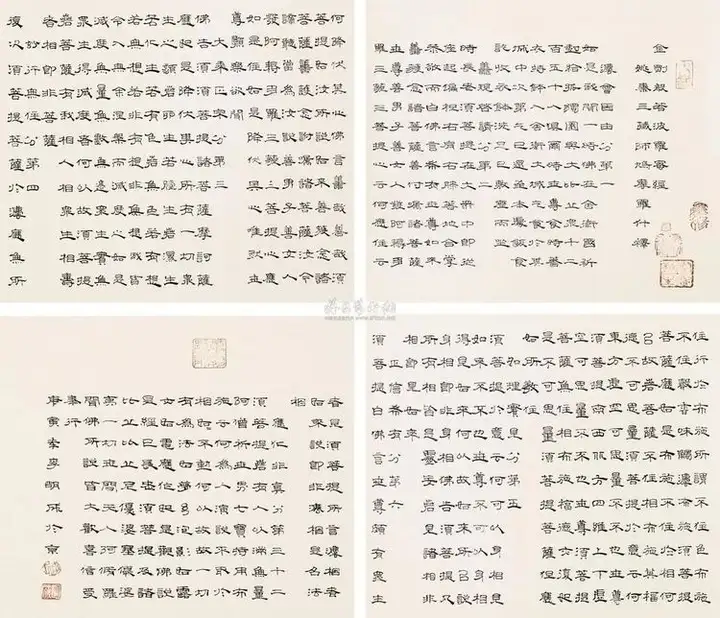 金剛般若波羅蜜經
姚秦三藏法師鳩摩羅什譯
法會因由分第一
如是我聞一時佛在舍衛國祇
樹給孤獨園與大比丘眾千二
百五十人俱爾時世尊食時著
衣持鉢入舍衛大城乞食於其
城中次第乞已還至本處飯食
訖收衣鉢洗足已敷座而坐
善現啟請分第二
時長老須菩提在大眾中即從
座起偏袒右肩右膝著地合掌
恭敬而白佛言希有世尊如來
善護念諸菩薩善付囑諸菩薩
世尊善男子善女人發阿耨多
羅三藐三菩提心云何應住云
何降伏其心佛言善哉善哉須
菩提如汝所說如來善護念諸
菩薩善付囑諸菩薩汝今
諦聽當為汝說善男子善女人
發阿耨多羅三藐三菩提心應
如是住如是降伏其心唯然世
尊願樂欲聞
大乘正宗分第三
佛告須菩提諸菩薩摩訶薩
應如是降伏其心所有一切眾
生之類若卵生若胎生若濕生
若化生若有色若無色若有想
若無想若非有想非無想我皆
令入無餘涅槃而滅度之如是
滅度無量無數無邊眾生實無
眾生得滅度者何以故須菩提
若菩薩有我相人相眾生相壽
者相即非菩薩
妙行無住分第四
復次須菩提菩薩於法應無所
住行於布施所謂不住色布施
不住聲香味觸法布施須菩提
菩薩應如是布施不住於相何
以故若菩薩不住相布施其福
德不可思量須菩提於意云何
東方虛空可思量不不也世尊
須菩提南西北方四維上下虛
空可思量不不也世尊須菩提
菩薩無住相布施福德亦復如
是不可思量須菩提菩薩但應
如所教住
如理實見分第五
須菩提於意云何可以身相見
如來不不也世尊不可以身相
得見如來何以故如來所說身
相即非身相佛告須菩提凡
所有相皆是虛妄若見諸相非
相即見如來
正信希有分第六
須菩提白佛言世尊頗有眾生
者須菩提所言法相者
如來說即非法相是名法
相
應化非真分第三十二
須菩提若有人以滿無量
阿僧祇世界七寶持用布
施
相如如不動何以故一切
有為法如夢幻泡影如露
亦如電應作如是觀佛說
是經已長老須菩提及諸
比丘比丘尼優婆塞優婆
夷一切世間天人阿修羅
聞佛所說皆大歡喜信受
奉行
庚寅 明成於京